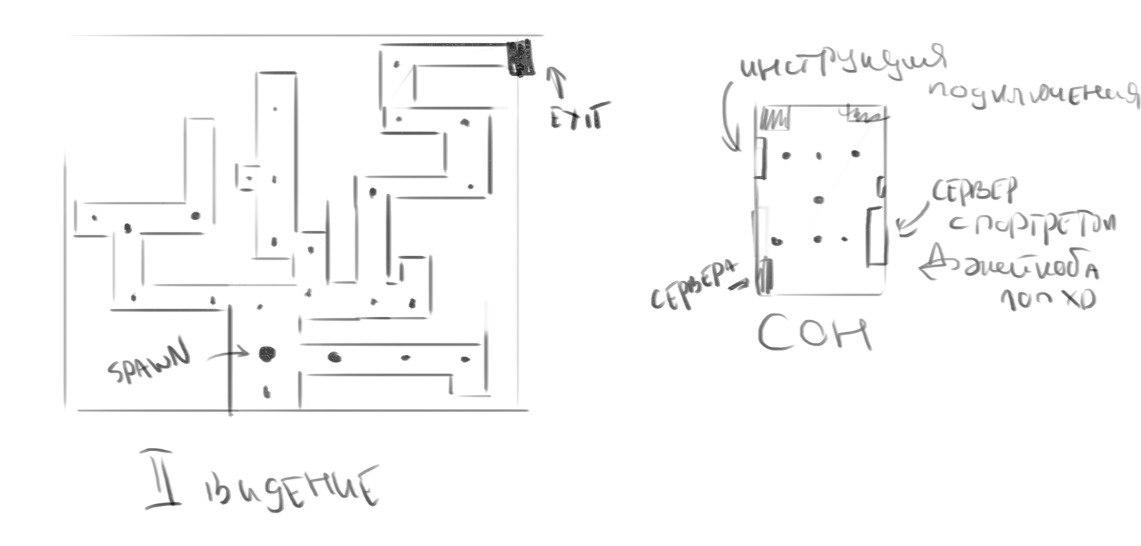 EXIT
SPAWN
II ВИДЕНИЕ
ИНСТРУКЦИЯ
ПОДКЛЮЧЕНИЯ
СЕРВЕР
С ПОРТРЕТОМ
ДЖЕЙКОБА
ЛОЛ XD
СЕРВЕРА
СОН